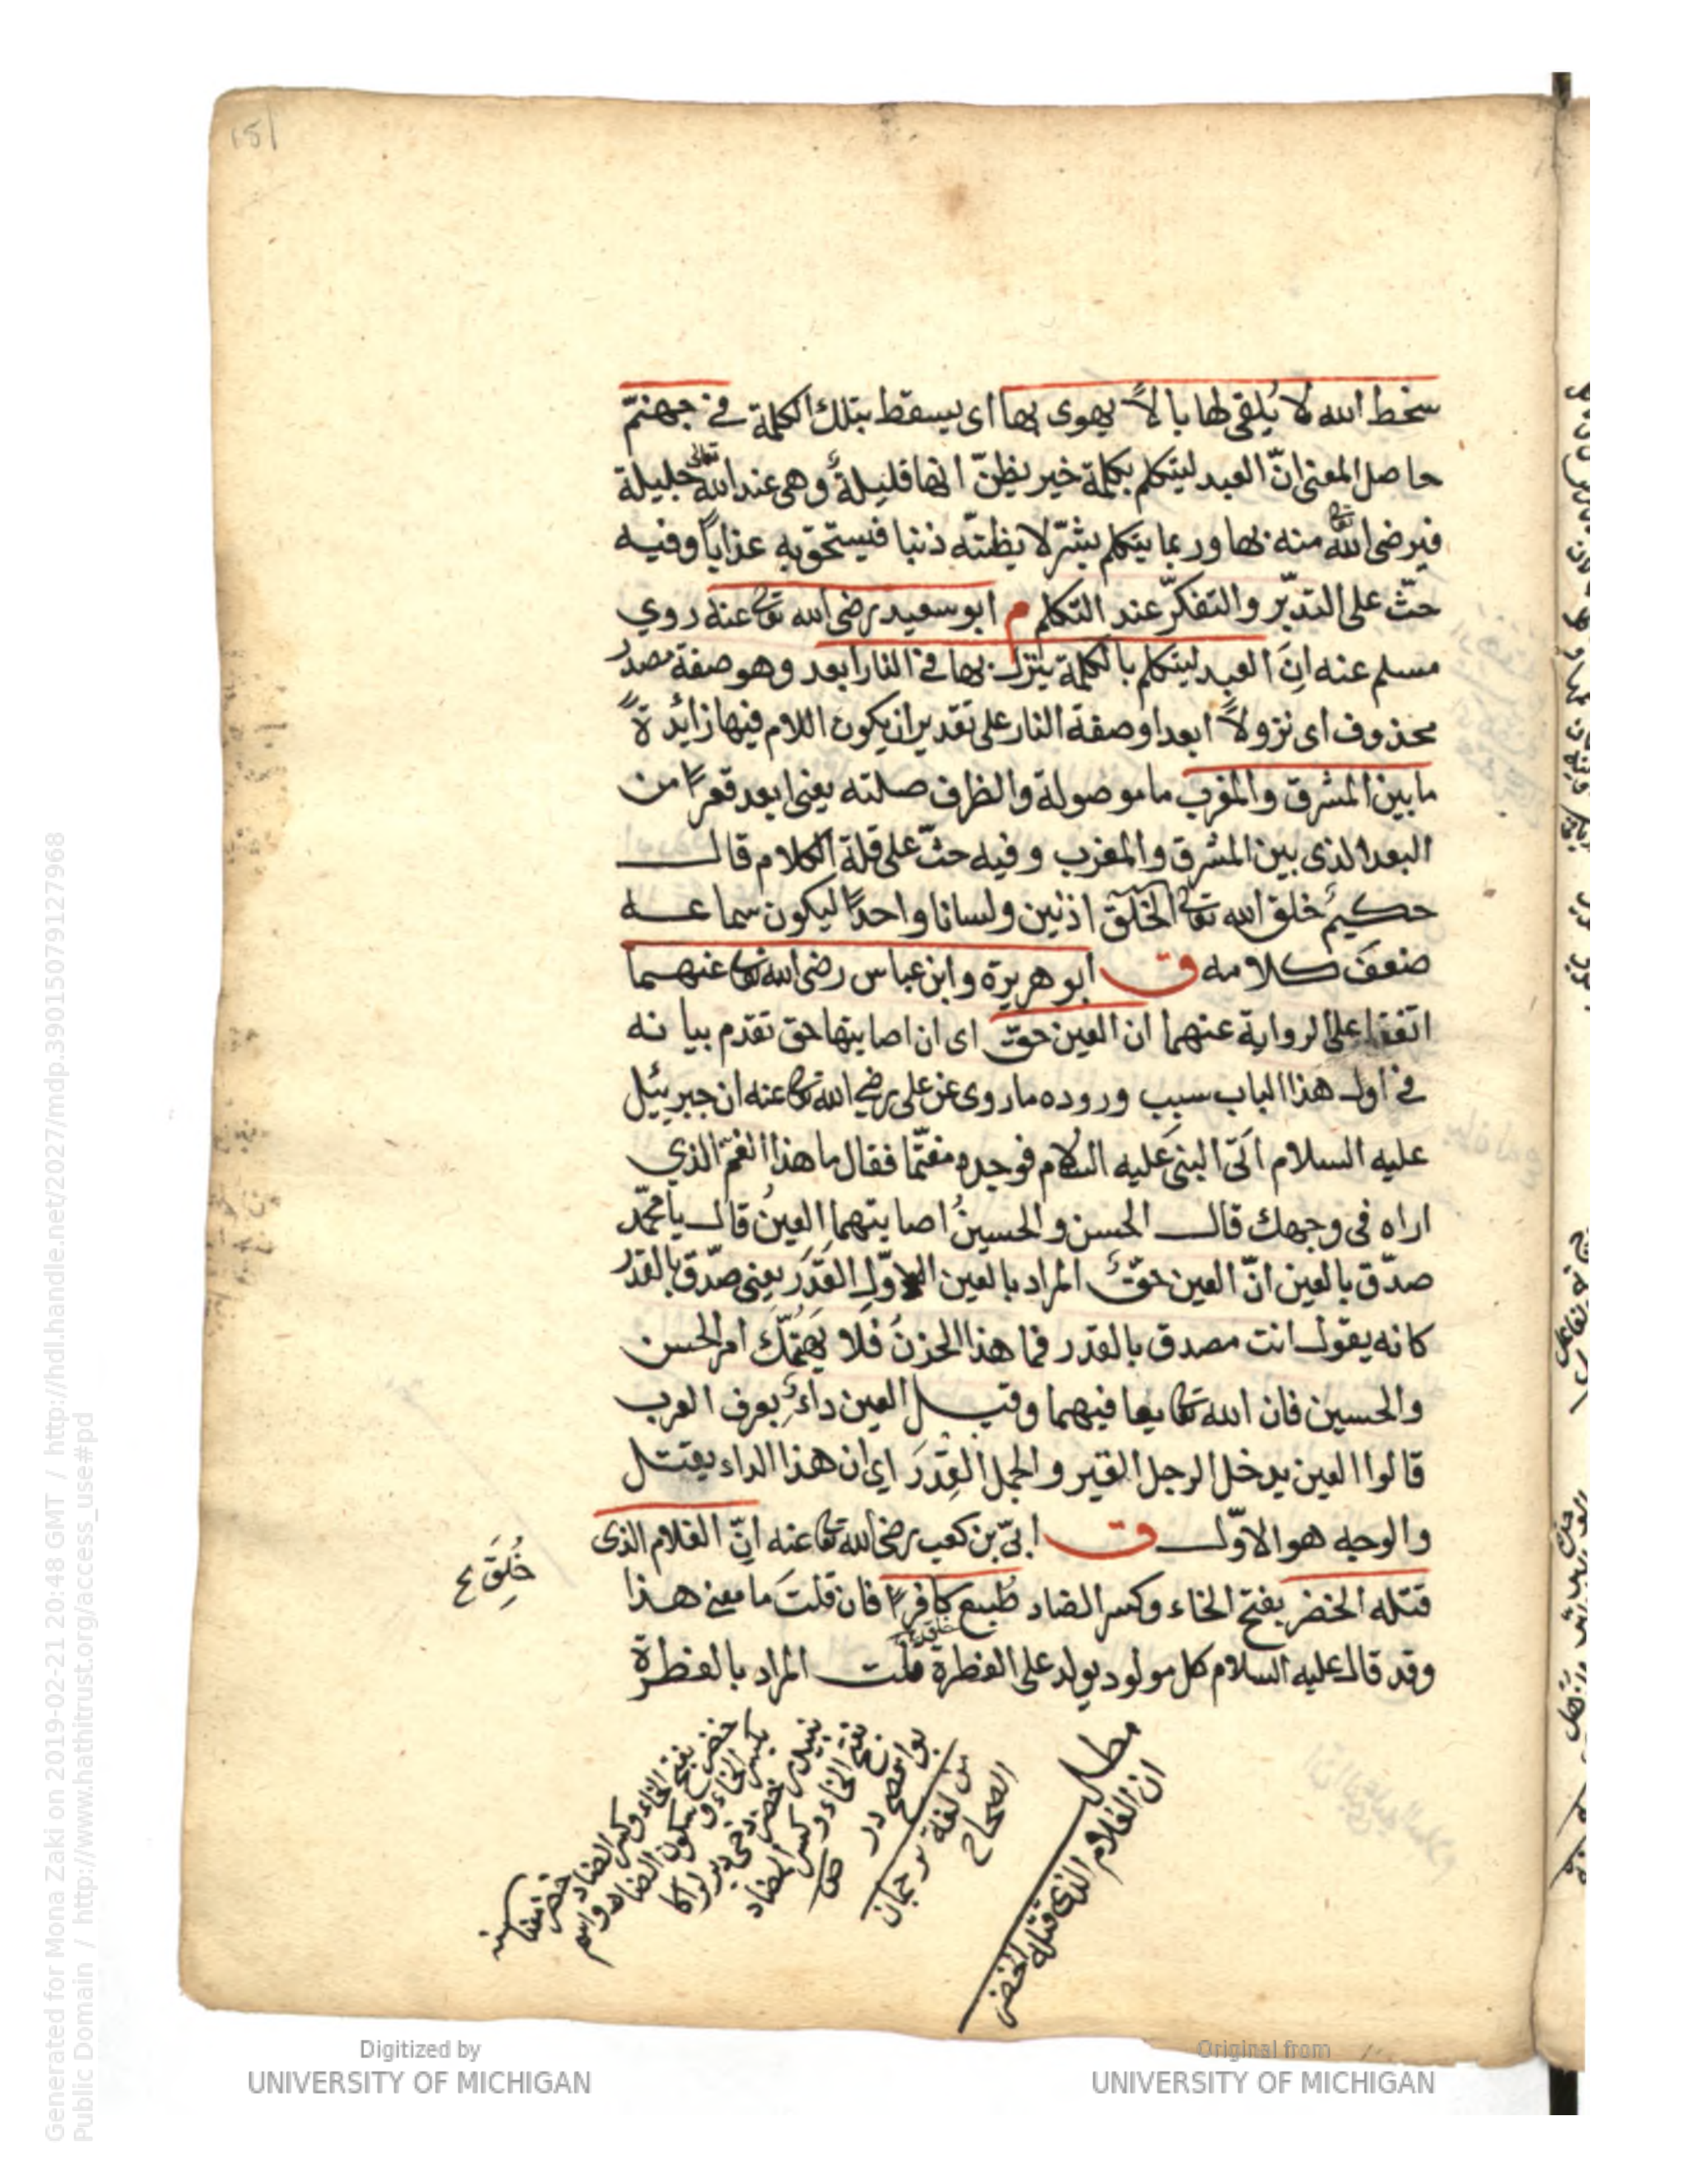 151
سخط الله لا يُلقى لها بالاً يهوى بها اى يسقط بتلك الكلمة فى جهنّم
حاصل المعنى انّ العبد ليتكلم بكلمة خير يظنّ انها قليلةٌ وهى عند الله تعالى جليلة
فيرضى الله تعالى منه بها وربما يتكلم بشرّ لا يظنّه ذنبا فيستحق به عذاباً وفيه
حثّ على التدبّر والتفكّر عند التكلم م ابو سعيد رضى الله تعالى عنه روي
مسلم عنه انّ العبد ليتكلم بالكلمة ينزل بها فى النار ابعد وهو صفة مصدر
محذوف اى نزولاً ابعد او صفة النار على تقدير ان يكون اللام فيها زائدةً
ما بين المشرق والمغرب ما موصولة والظرف صلته يعنى ابعد قعراً من
البعد الذى بين المشرق والمغرب وفيه حثّ على قلة الكلام قال
حكيمٌ خلق الله تعالى الخلق اذنين ولسانا واحداً ليكون سماعه
ضعفَ كلامه ق ابو هريرة وابن عباس رضى الله تعالى عنهما
اتفقا على الرواية عنهما ان العين حقّ اى ان اصابتها حق تقدم بيانه
فى اول هذا الباب سبب وروده ما روى عن على رضي الله تعالى عنه ان جبرئيل
عليه السلام اتى النبى عليه السلام فوجده مغتمّا فقال ما هذا الغمّ الذي
اراه فى وجهك قال الحسن والحسينُ اصابتهما العينُ قال يا محمّد
صدّق بالعين انّ العين حقّ المراد بالعين الاول القَدَرَ يعنى صدّق بالقدر
كانه يقول انت مصدق بالقدر فما هذا الحزنُ فلا يهتمّك امر الحسن
والحسين فان الله تعالى يعافيهما وقيل العين داءٌ يعرف العرب
قالوا العين يدخل الرجل القبر والجمل القِدرَ اى ان هذا الداء يقتل
والوجه هو الاوّل ق ابىّ بن كعب رضى الله تعالى عنه انّ الغلام الذى
قتله الخضر بفتح الخاء وكسر الضاد طُبع كافراً فان قلتَ ما معنى هذا
خُلِقَ ع
وقد قال عليه السلام كل مولود يولد على الفطرة قلت المراد بالفطرة
مطلب
ان الغلام الذى قتله الخضر
لغة ترجمان
الصحاح
بفتح الخاء وكسر الضاد
Generated for Mona Zaki on 2019-02-21 20:48 GMT / http://hdl.handle.net/2027/mdp.39015079127968
Public Domain / http://www.hathitrust.org/access_use#pd
Digitized by
UNIVERSITY OF MICHIGAN
Original from
UNIVERSITY OF MICHIGAN